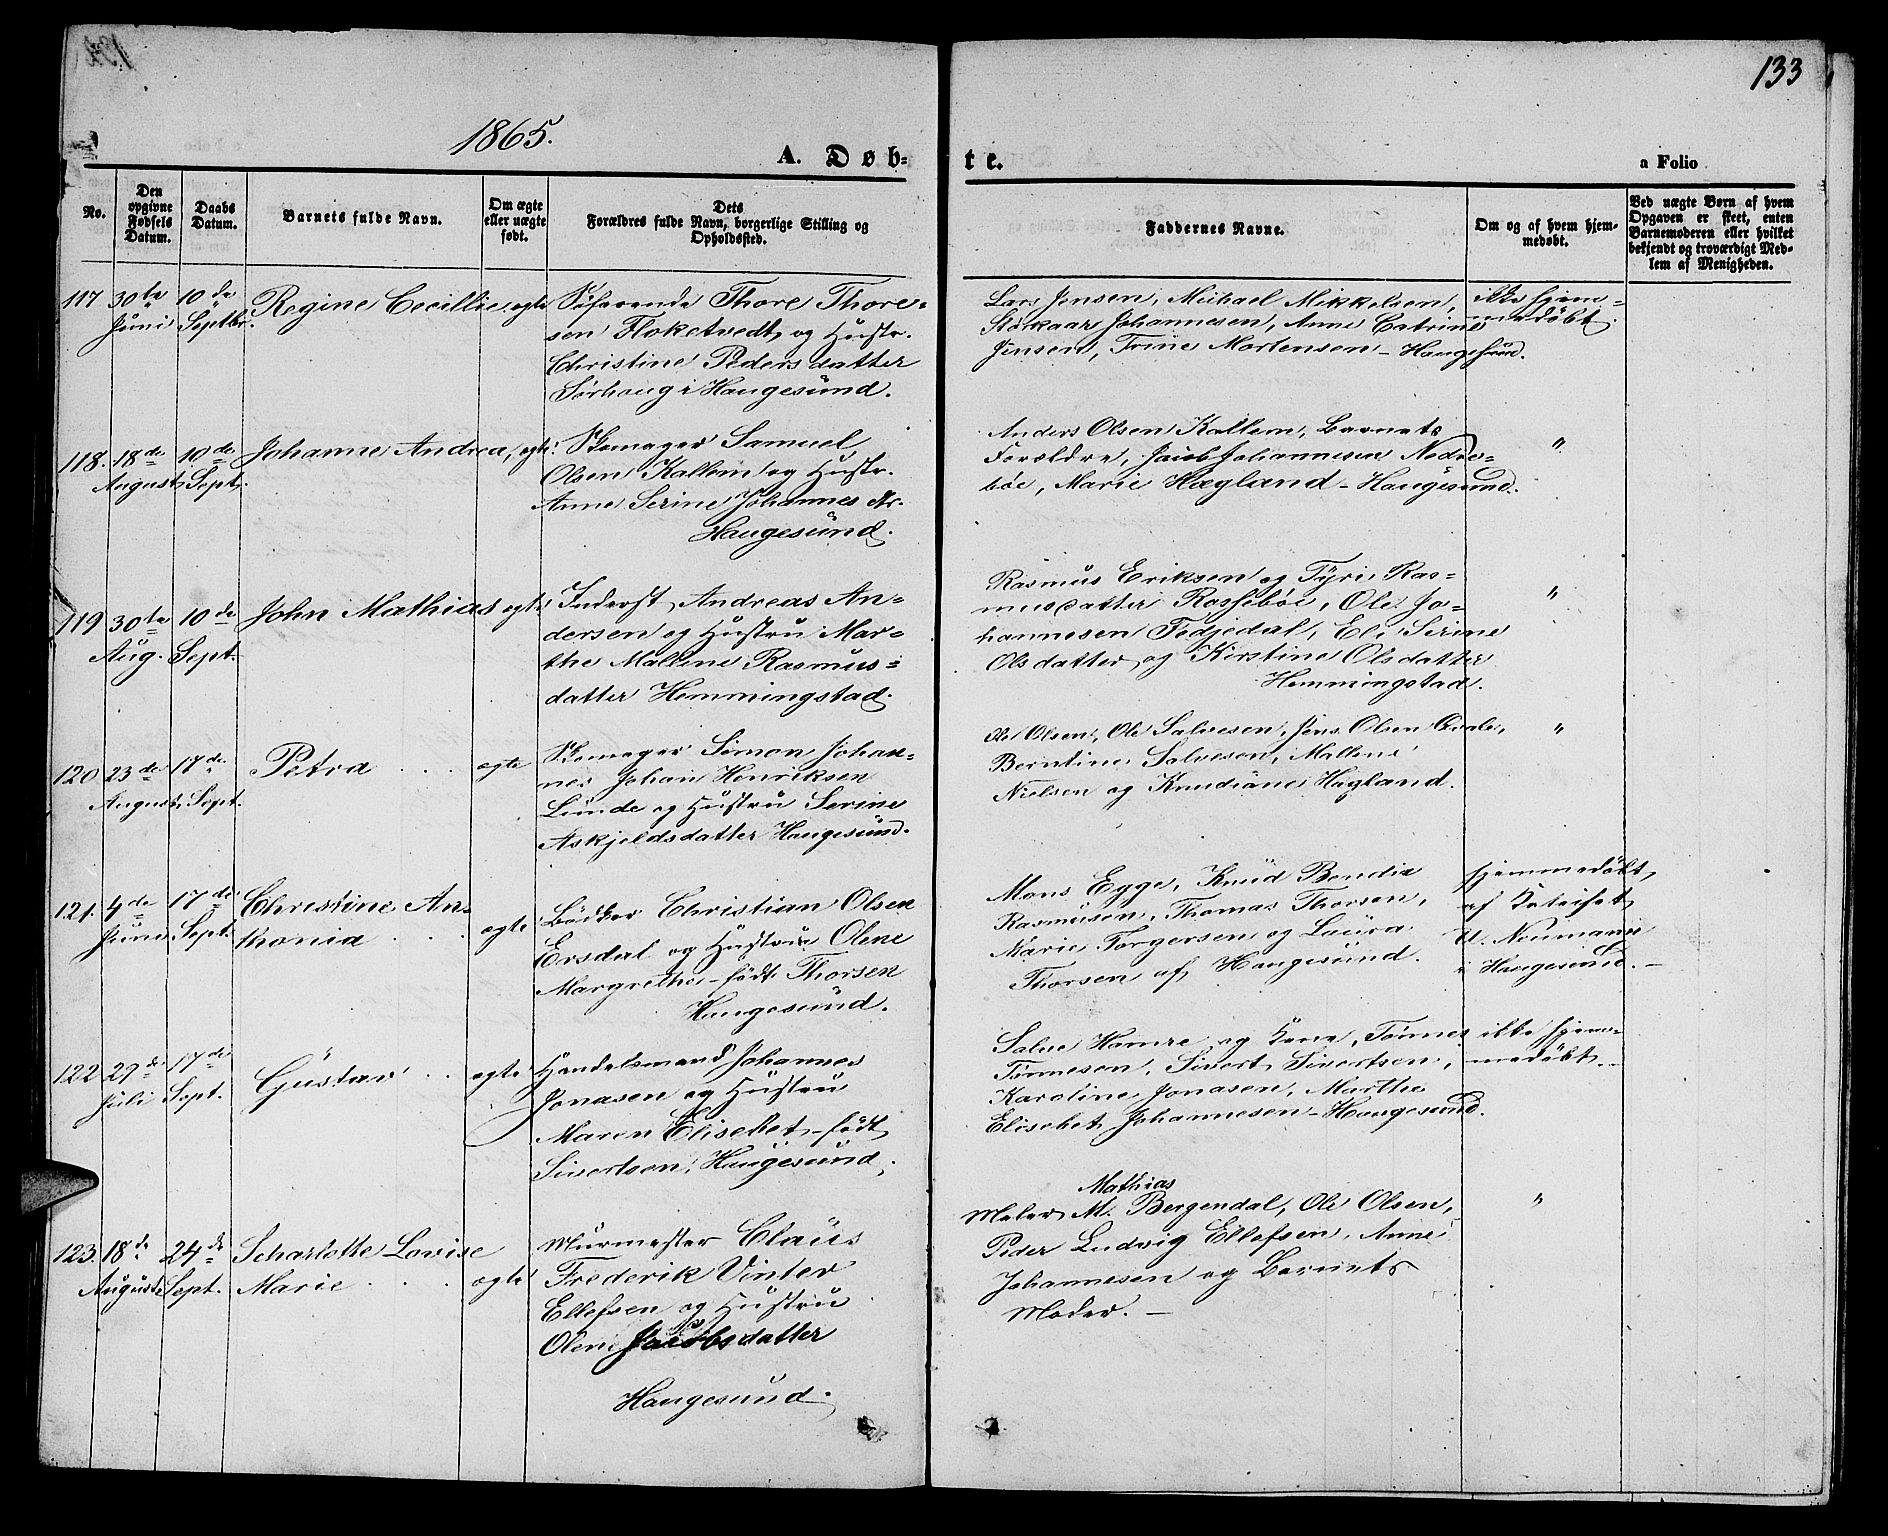 133
1865.
A. Døb-
te.
a Folio
No.
Den opgivne Fødsels Datum.
Daabs Datum.
Barnets fulde Navn.
Om ægte eller uægte født.
Dets Forældres fulde Navn, borgerlige Stilling og Opholdssted.
Faddernes Navne.
Om og af hvem hjem-
medøbt.
Ved uægte Børn af hvem
Opgaven er skeet, enten
Barnemoderen eller hvilket
bekjendt og troværdigt Med-
lem af Menigheden.
117 30te Juni 10de Septbr. Regine Cecillie egte
Søfarende Thore Thore-
sen Floketvedt og Hustr.
Christine Pedersdatter
Sørhaug i Haugesund.
Lars Jensen, Michael Mikkelsen,
Storkaar Johannesen, Anne Catrine
Jensen, Trine Mortensen - Haugesund.
ikke hjem-
medøbt.
118. 18de August 10de Sept. Johanne Andrea, egte
Skomager Samuel
Olsen Kallem og Hustr.
Anne Serine Johannes dr.
Haugesund.
Anders Olsen Kallem, Barnets
Forældre, Jacob Johannesen Nedre-
bøe, Marie Hagland - Haugesund.
"
119 30te Aug. 10de Sept. John Mathias egte
Inderst Andreas An-
dersen og Hustru Mar-
the Mallene Rasmus-
datter Hemmingstad.
Rasmus Eriksen og Tyri Ras-
musdatter Rossebøe, Ole Jo-
hannesen Fedjedal, Eli Serine
Olsdatter og Kirstine Olsdatter
Hemmingstad.
"
120 23de August 17de Sept. Petra egte
Skomager Simon Johan-
nes Johan Henriksen
Lunde og Hustru Serine
Askjeldsdatter Haugesund.
Ole Olsen, Ole Salvesen, Jens Olsen Qvale,
Berntine Salvesen, Mallene
Nielsen og Knudiane Hagland.
"
121. 4de Juni 17de Sept. Christine An-
thonia egte
Bødker Christian Olsen
Ersdal og Hustru Olene
Margrethe - født Thorsen
Haugesund.
Mons Egge, Knud Bendix
Rasmusen, Thomas Thorsen,
Marie Torgersen og Laura
Thorsen af Haugesund.
hjemmedøbt,
af Kateket
U. Neumann
i Haugesund. -
122 29de Juli 17de Sept. Gustav egte
Handelsmand Johannes
Jonasen og Hustru
Maren Elisebet - født
Sivertsen, Haugesund.
Salve Hamre og Kone, Tønnes
Tønnesen, Sivert Sivertsen,
Karoline Jonasen, Marthe
Elisebet Johannesen - Haugesund.
ikke hjem-
medøbt.
123. 18de August 24de Sept. Scharlotte Lovise
Marie egte
Murmester Claus
Frederik Vinter
Ellefsen og Hustru
Olene Jacobsdatter
Haugesund.
Mathias
Maler M. Bergendal, Ole Olsen,
Peder Ludvig Ellefsen, Anne
Johannesen og Barnets
Moder. -
"